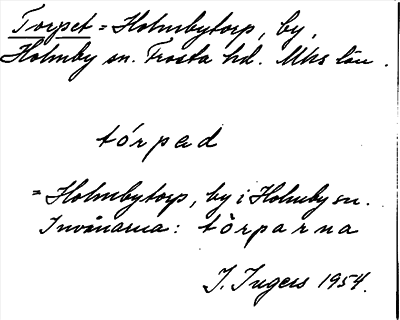 Torpet = Holmbytorp, by,
Holmby sn. Frosta hd. Mhs län.
tórpad
= Holmbytorp, by i Holmby sn.
Invånarna: tòrparna
I. Ingers 1954.